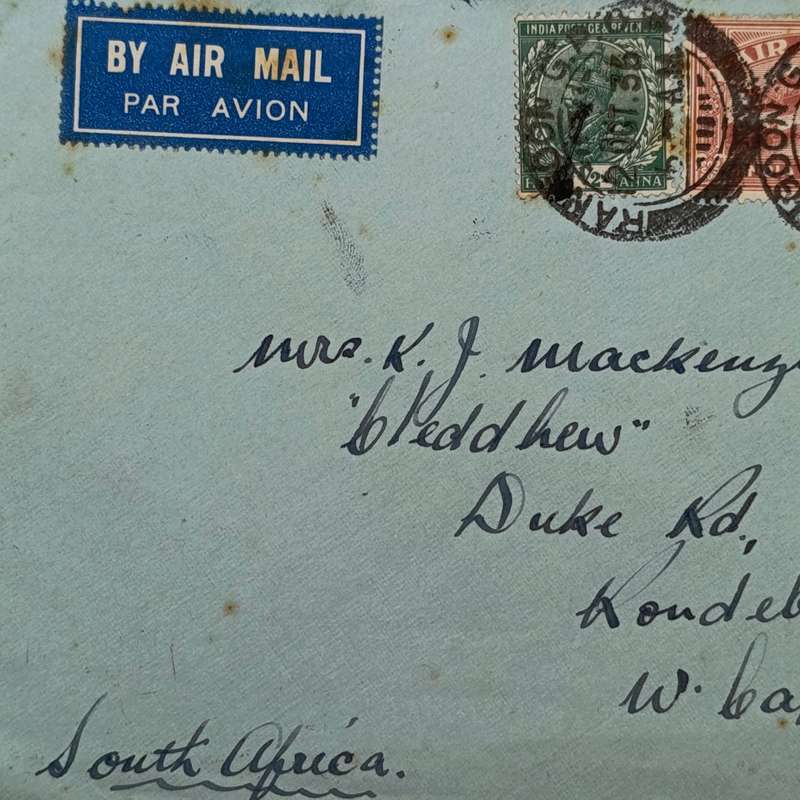 BY AIR MAIL
PAR AVION
INDIA POSTAGE & REVEN
ANNA
AIR
RANGOON
OCT. 36
Mrs. K. J. Mackenz
"Cleddhew"
Duke Rd,
Rondeb
W. Ca
South Africa.